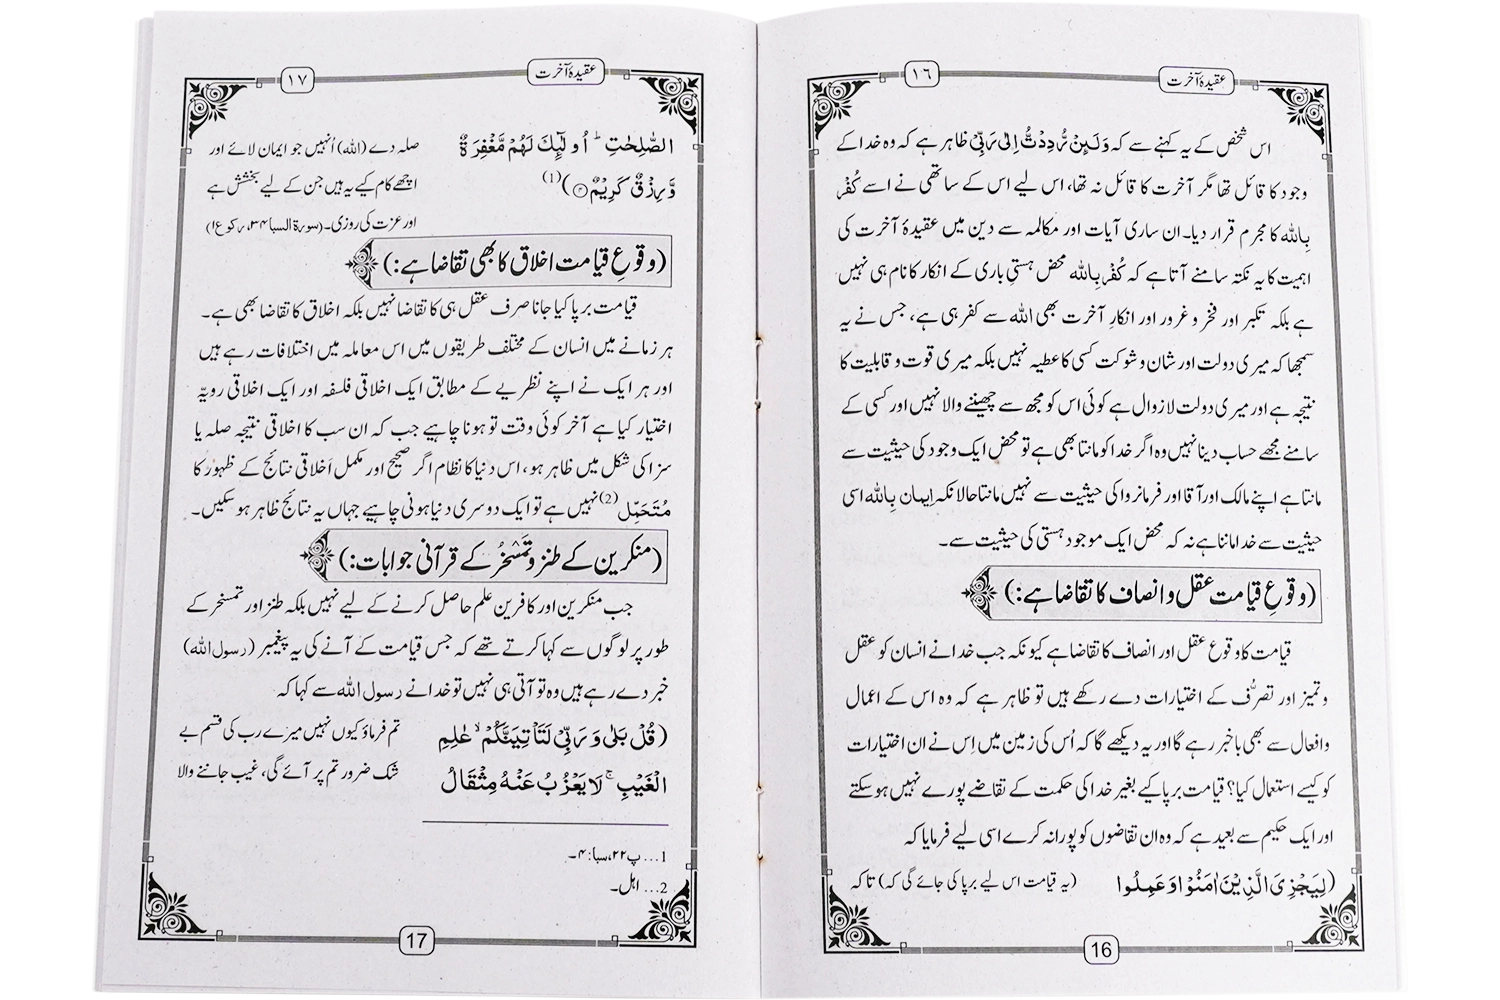 عقیدۂ آخرت
١٦
اس شخص کے یہ کہنے سے کہ وَلَئِنْ رُّدِدْتُّ اِلٰى رَبِّیْ ظاہر ہے کہ وہ خدا کے
وجود کا قائل تھا مگر آخرت کا قائل نہ تھا، اس لیے اس کے ساتھی نے اسے کُفْر
بِاللّٰہ کا مجرم قرار دیا۔ ان ساری آیات اور مکالمہ سے دین میں عقیدۂ آخرت کی
اہمیت کا یہ نکتہ سامنے آتا ہے کہ کُفْر بِاللّٰہ محض ہستیِ باری کے انکار کا نام ہی نہیں
ہے بلکہ تکبر اور فخر و غرور اور انکارِ آخرت بھی اللّٰہ سے کفر ہی ہے، جس نے یہ
سمجھا کہ میری دولت اور شان و شوکت کسی کا عطیہ نہیں بلکہ میری قوت و قابلیت کا
نتیجہ ہے اور میری دولت لازوال ہے کوئی اس کو مجھ سے چھیننے والا نہیں اور کسی کے
سامنے مجھے حساب دینا نہیں وہ اگر خدا کو مانتا بھی ہے تو محض ایک وجود کی حیثیت سے
مانتا ہے اپنے مالک اور آقا اور فرمانروا کی حیثیت سے نہیں مانتا حالانکہ اِیمان بِاللّٰہ اسی
حیثیت سے خدا ماننا ہے نہ کہ محض ایک موجود ہستی کی حیثیت سے۔
(وقوعِ قیامت عقل و انصاف کا تقاضا ہے:)
قیامت کا وقوع عقل اور انصاف کا تقاضا ہے کیونکہ جب خدا نے انسان کو عقل
و تمیز اور تصرُّف کے اختیارات دے رکھے ہیں تو ظاہر ہے کہ وہ اس کے اعمال
و افعال سے بھی باخبر رہے گا اور یہ دیکھے گا کہ اُس کی زمین میں اِس نے ان اختیارات
کو کیسے استعمال کیا؟ قیامت برپا کیے بغیر خدا کی حکمت کے تقاضے پورے نہیں ہو سکتے
اور ایک حکیم سے بعید ہے کہ وہ ان تقاضوں کو پورا نہ کرے اسی لیے فرمایا کہ
(لِیَجْزِیَ الَّذِیْنَ اٰمَنُوْا وَ عَمِلُوا
(یہ قیامت اس لیے برپا کی جائے گی کہ) تاکہ
16
عقیدۂ آخرت
١٧
الصّٰلِحٰتِؕ اُولٰٓئِكَ لَهُمْ مَّغْفِرَةٌ
وَّ رِزْقٌ كَرِیْمٌ۝۴)(1)
صلہ دے (اللّٰہ) اُنہیں جو ایمان لائے اور
اچھے کام کیے یہ ہیں جن کے لیے بخشش ہے
اور عزت کی روزی۔ (سورۃ السبا ۳۴، رکوع ۱)
(وقوعِ قیامت اخلاق کا بھی تقاضا ہے:)
قیامت برپا کیا جانا صرف عقل ہی کا تقاضا نہیں بلکہ اخلاق کا تقاضا بھی ہے۔
ہر زمانے میں انسان کے مختلف طریقوں میں اس معاملہ میں اختلافات رہے ہیں
اور ہر ایک نے اپنے نظریے کے مطابق ایک اخلاقی فلسفہ اور ایک اخلاقی رویّہ
اختیار کیا ہے آخر کوئی وقت تو ہونا چاہیے جب کہ ان سب کا اخلاقی نتیجہ صلہ یا
سزا کی شکل میں ظاہر ہو، اس دنیا کا نظام اگر صحیح اور مکمل اَخلاقی نتائج کے ظہور کا
مُتَحَمِّل(2) نہیں ہے تو ایک دوسری دنیا ہونی چاہیے جہاں یہ نتائج ظاہر ہو سکیں۔
(منکرین کے طنز و تَمَسْخُر کے قرآنی جوابات:)
جب منکرین اور کافرین علم حاصل کرنے کے لیے نہیں بلکہ طنز اور تمسخر کے
طور پر لوگوں سے کہا کرتے تھے کہ جس قیامت کے آنے کی یہ پیغمبر (رسول اللّٰہ)
خبر دے رہے ہیں وہ تو آتی ہی نہیں تو خدا نے رسول اللّٰہ سے کہا کہ
(قُلْ بَلٰى وَ رَبِّیْ لَتَاْتِیَنَّكُمْۙ عٰلِمِ
الْغَیْبِۚ لَا یَعْزُبُ عَنْهُ مِثْقَالُ
تم فرماؤ کیوں نہیں میرے رب کی قسم بے
شک ضرور تم پر آئے گی، غیب جاننے والا
1... پ۲۲، سبا: ۴۔
2... اہل۔
17